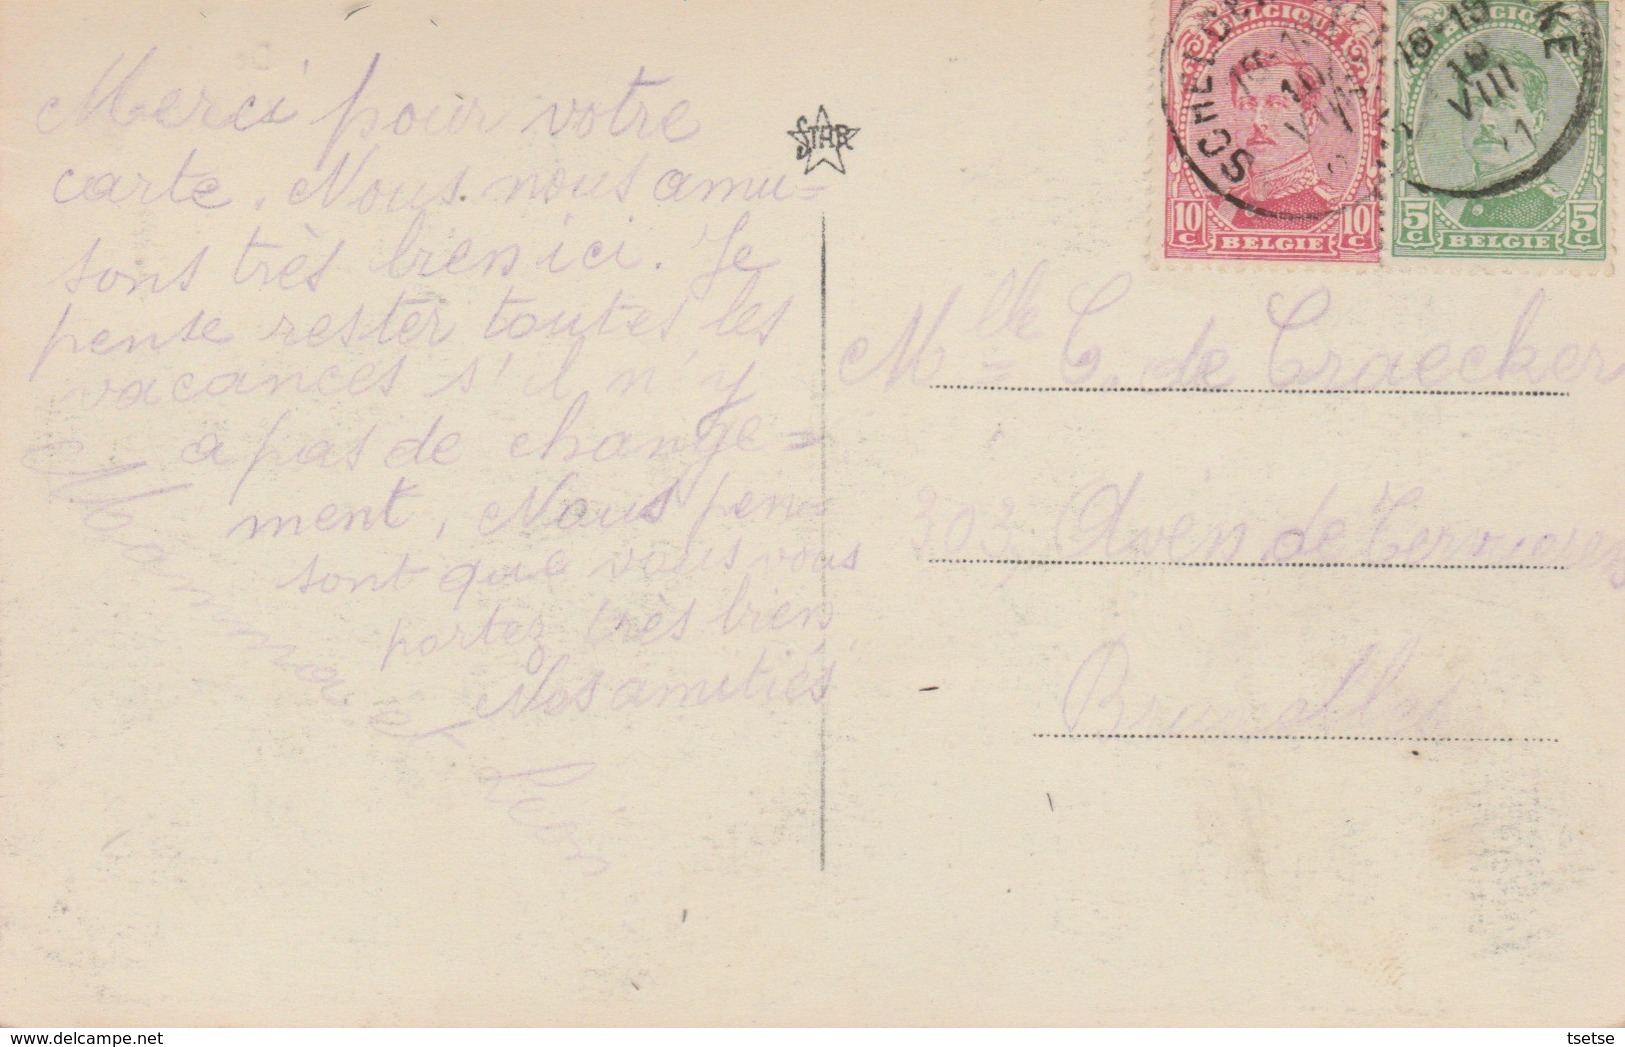 Merci pour votre
carte. Nous nous amu=
sons très bien ici. Je
pense rester toutes les
vacances s'il n'y
a pas de change=
ment, Nous pen=
sont que vous vous
portez très bien
Nos amitiés
Mamma et
STAR
BELGIQUE
10 C BELGIE 10 C
BELGIQUE
5 C BELGIE 5 C
18-19
10
VIII
Mlle C. de Craecker
303 Aven de Tervueren
Bruxelles
delcampe.net
tsetse